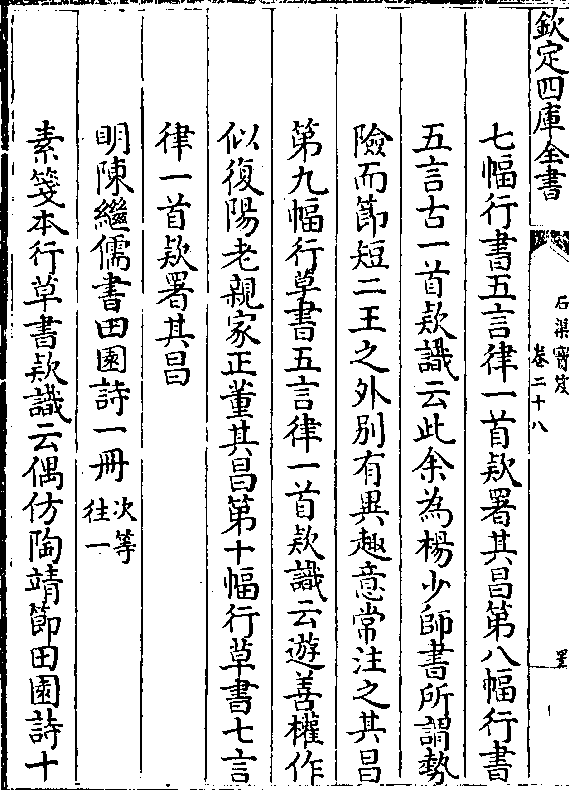 欽定四庫全書
石渠寶笈
卷二十八
七幅行書五言律一首款署其昌第八幅行書
五言古一首款識云此余為楊少師書所謂勢
險而節短二王之外別有異趣意常注之其昌
第九幅行草書五言律一首款識云遊善權作
似復陽老親家正董其昌第十幅行草書七言
律一首款署其昌
明陳繼儒書田園詩一冊次等
往一
素箋本行草書款識云偶仿陶靖節田園詩十